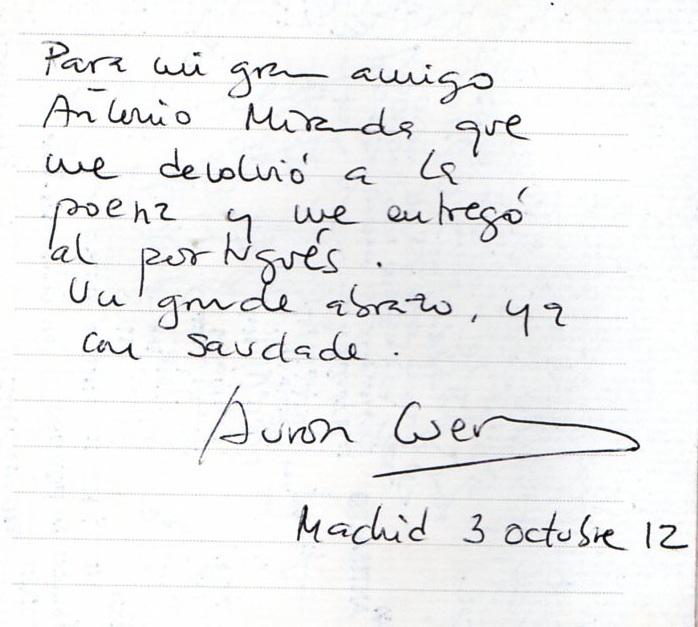 Para mi gran amigo
Antonio Miranda que
me devolvió a la
poesía y me entregó
al portugués.
Un grande abrazo, ya
con saudade.
Madrid 3 octubre 12